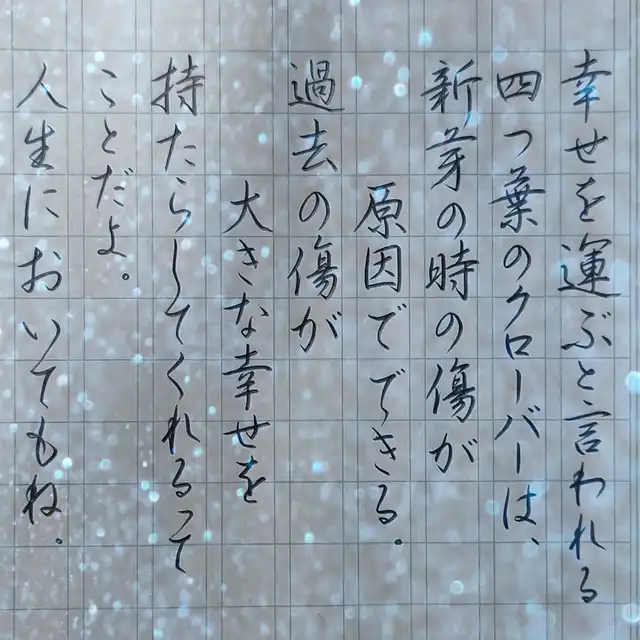 幸せを運ぶと言われる
四つ葉のクローバーは、
新芽の時の傷が
原因でできる。
過去の傷が
大きな幸せを
持たらしてくれるって
ことだよ。
人生においてもね。